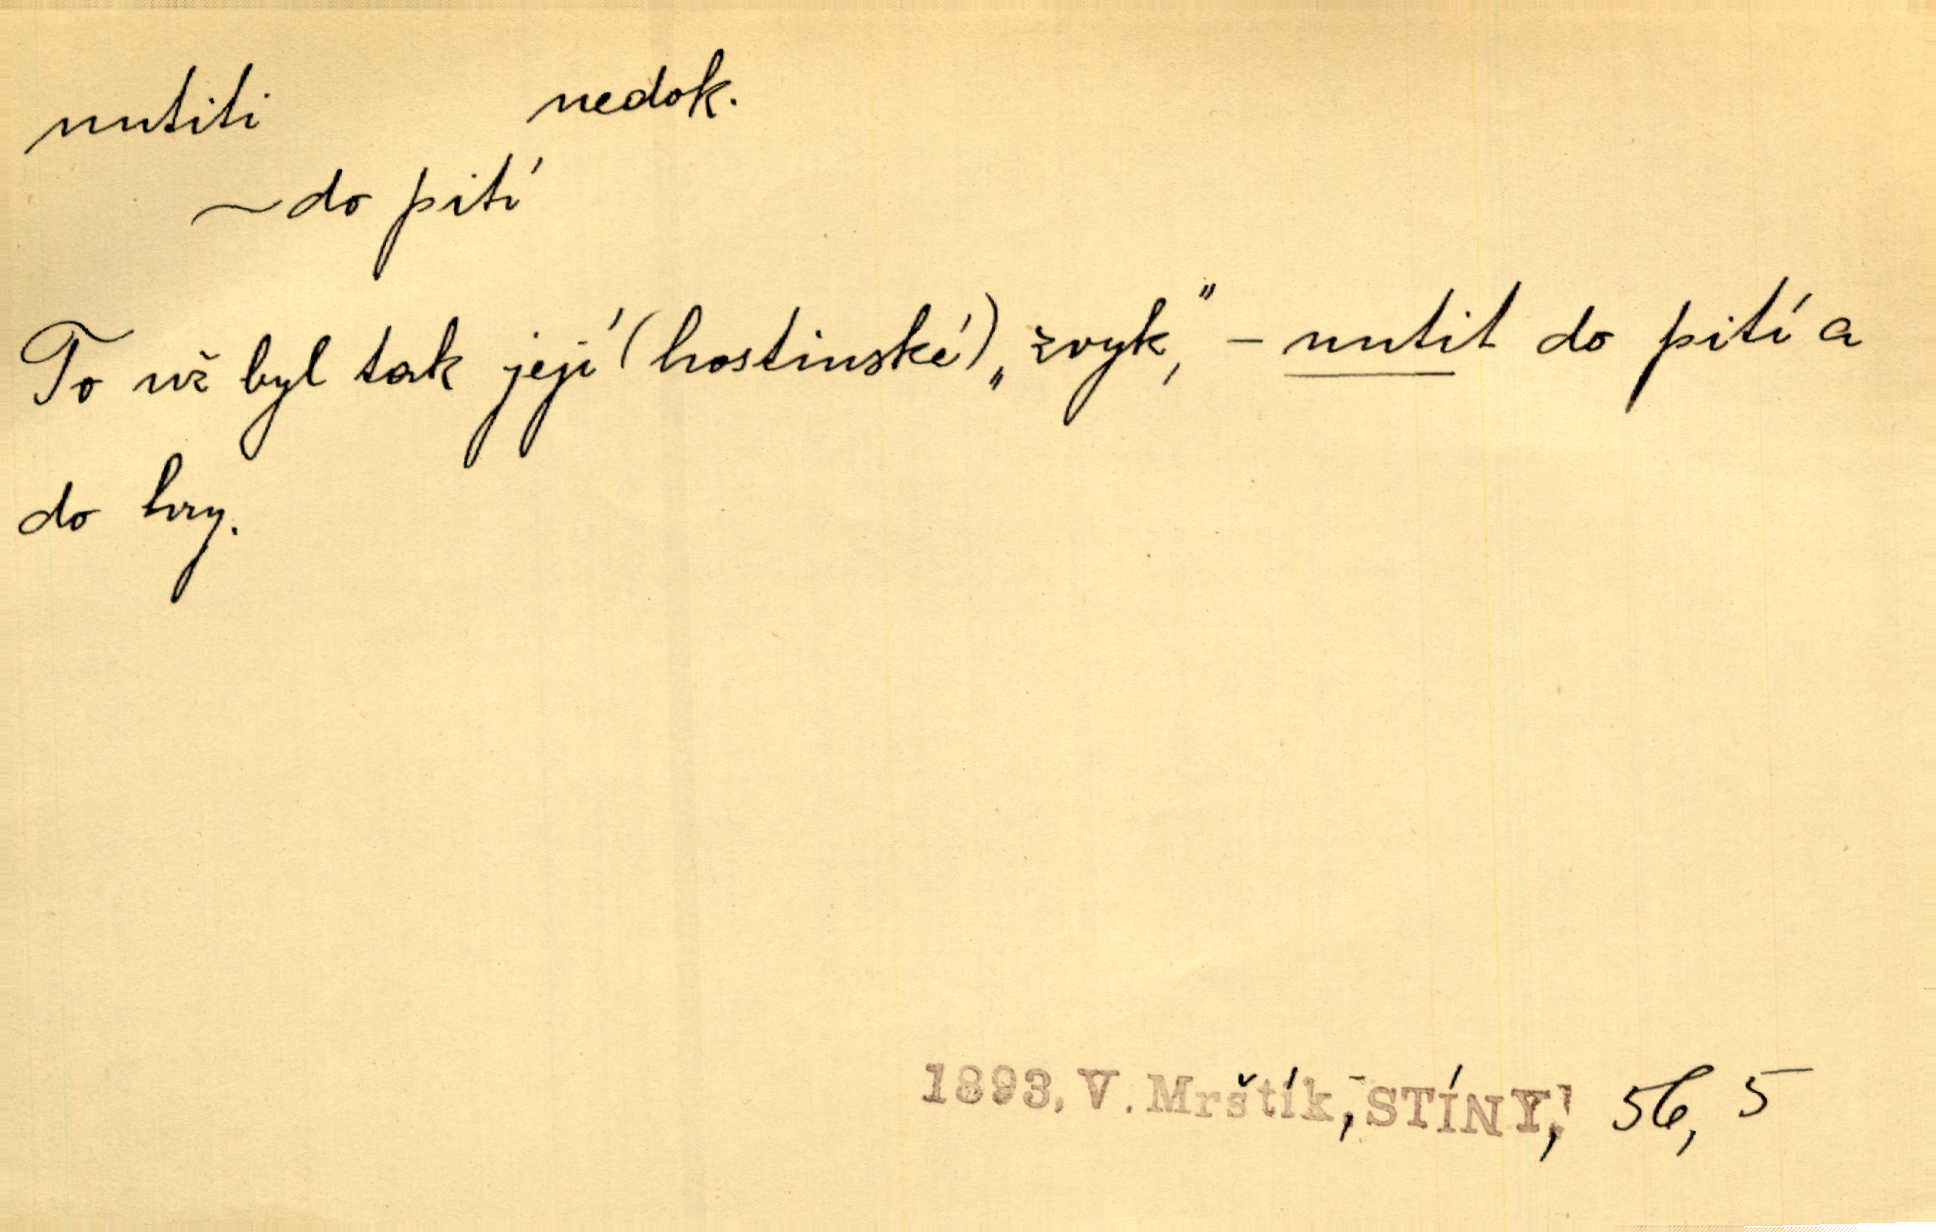 nutiti nedok.
~ do pití
To už byl tak její (hostinské) „zvyk,” – nutit do pití a
do hry.
1893, V. Mrštík, STÍNY, 56, 5